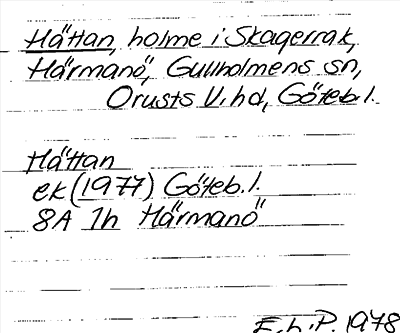 Hättan, holme i Skagerrak,
Härmanö, Gullholmens sn,
Orusts V. hd, Göteb. l.
Hättan
ek (1977) Göteb. l.
8A 1h Härmanö
E. h. P. 1978